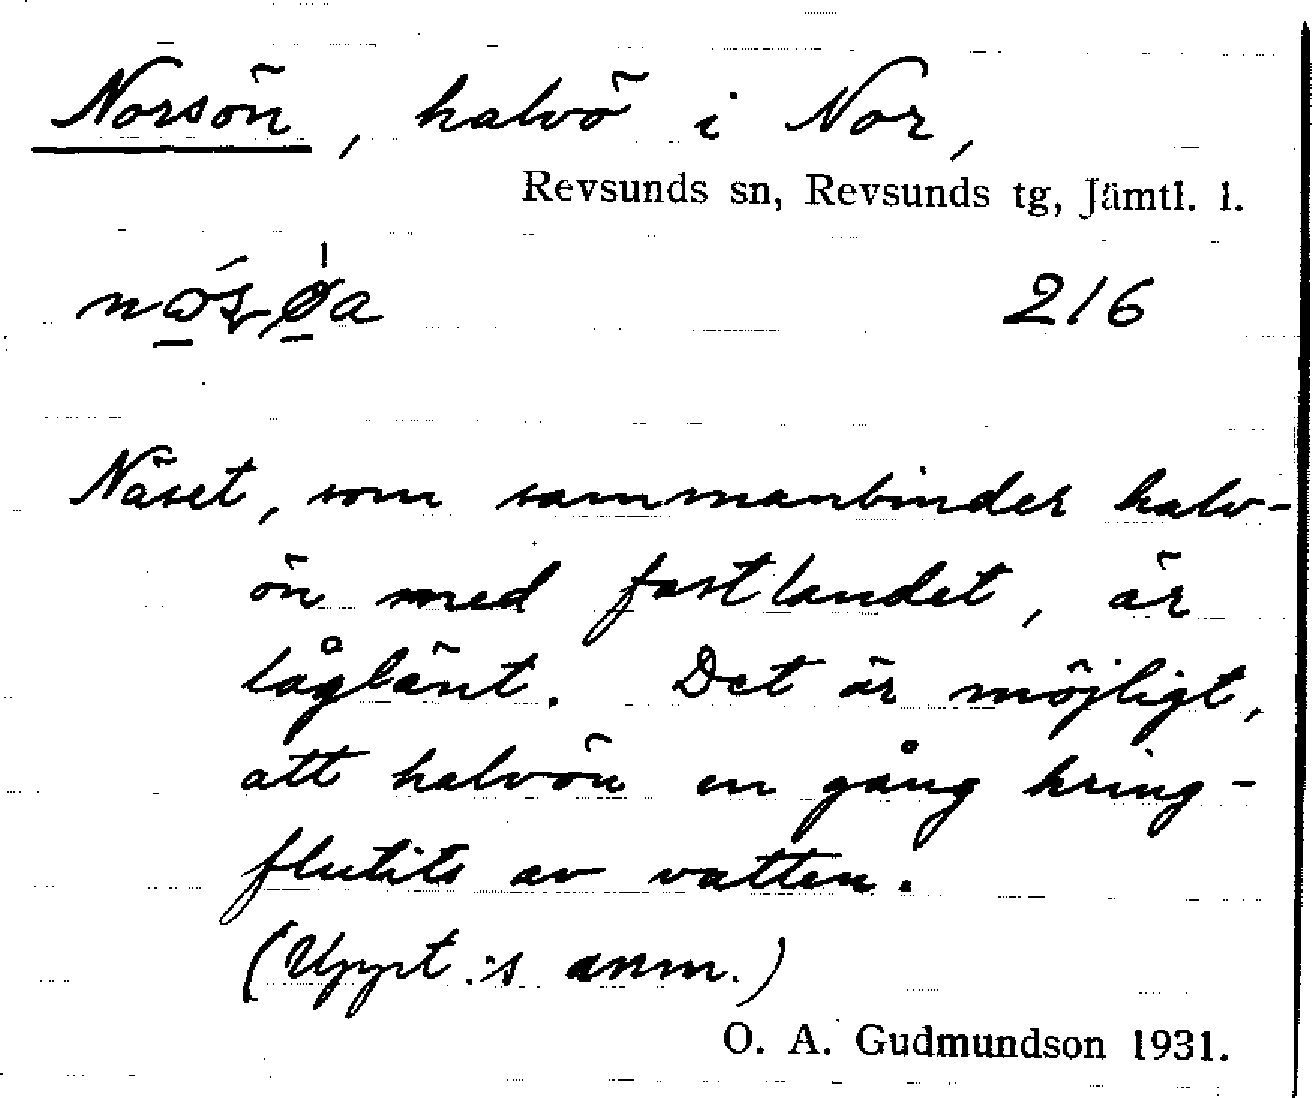 Norsön, halvö i Nor,
Revsunds sn, Revsunds tg, Jämtl. l.
216
Näset, som sammanbinder halv-
ön med fastlandet, är
låglänt. Det är möjligt,
att halvön en gång kring-
flutits av vatten.
(Uppt.:s anm.)
O. A. Gudmundson 1931.